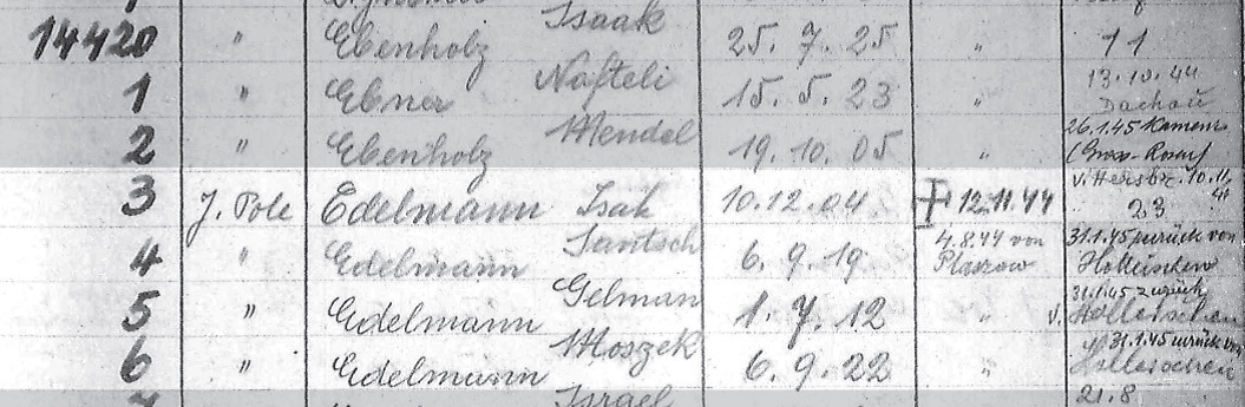 Isaak
14420 " Ebenholz 25. 7. 25 " 11
Nafteli 13.10.44
1 " Ebner 15. 5. 23 " Dachau
Mendel 26.1.45 Kamenz
2 " Ebenholz 19. 10. 05 " (Gross-Rosen)
v. Hersbr. 10.11.
3 J. Pole Edelmann Isak 10.12.04 12.11.44 23 44
Jantsch 4.8.44 von 31.1.45 zurück von
4 " Edelmann 6. 9. 19 Plaszow Holleischen
Gelman 31.1.45 zurück
5 " Edelmann 1. 7. 12 " v. Holleischen
Moszek 31.1.45 zurück von
6 " Edelmann 6. 9. 22 " Holleischen
Israel 21.8